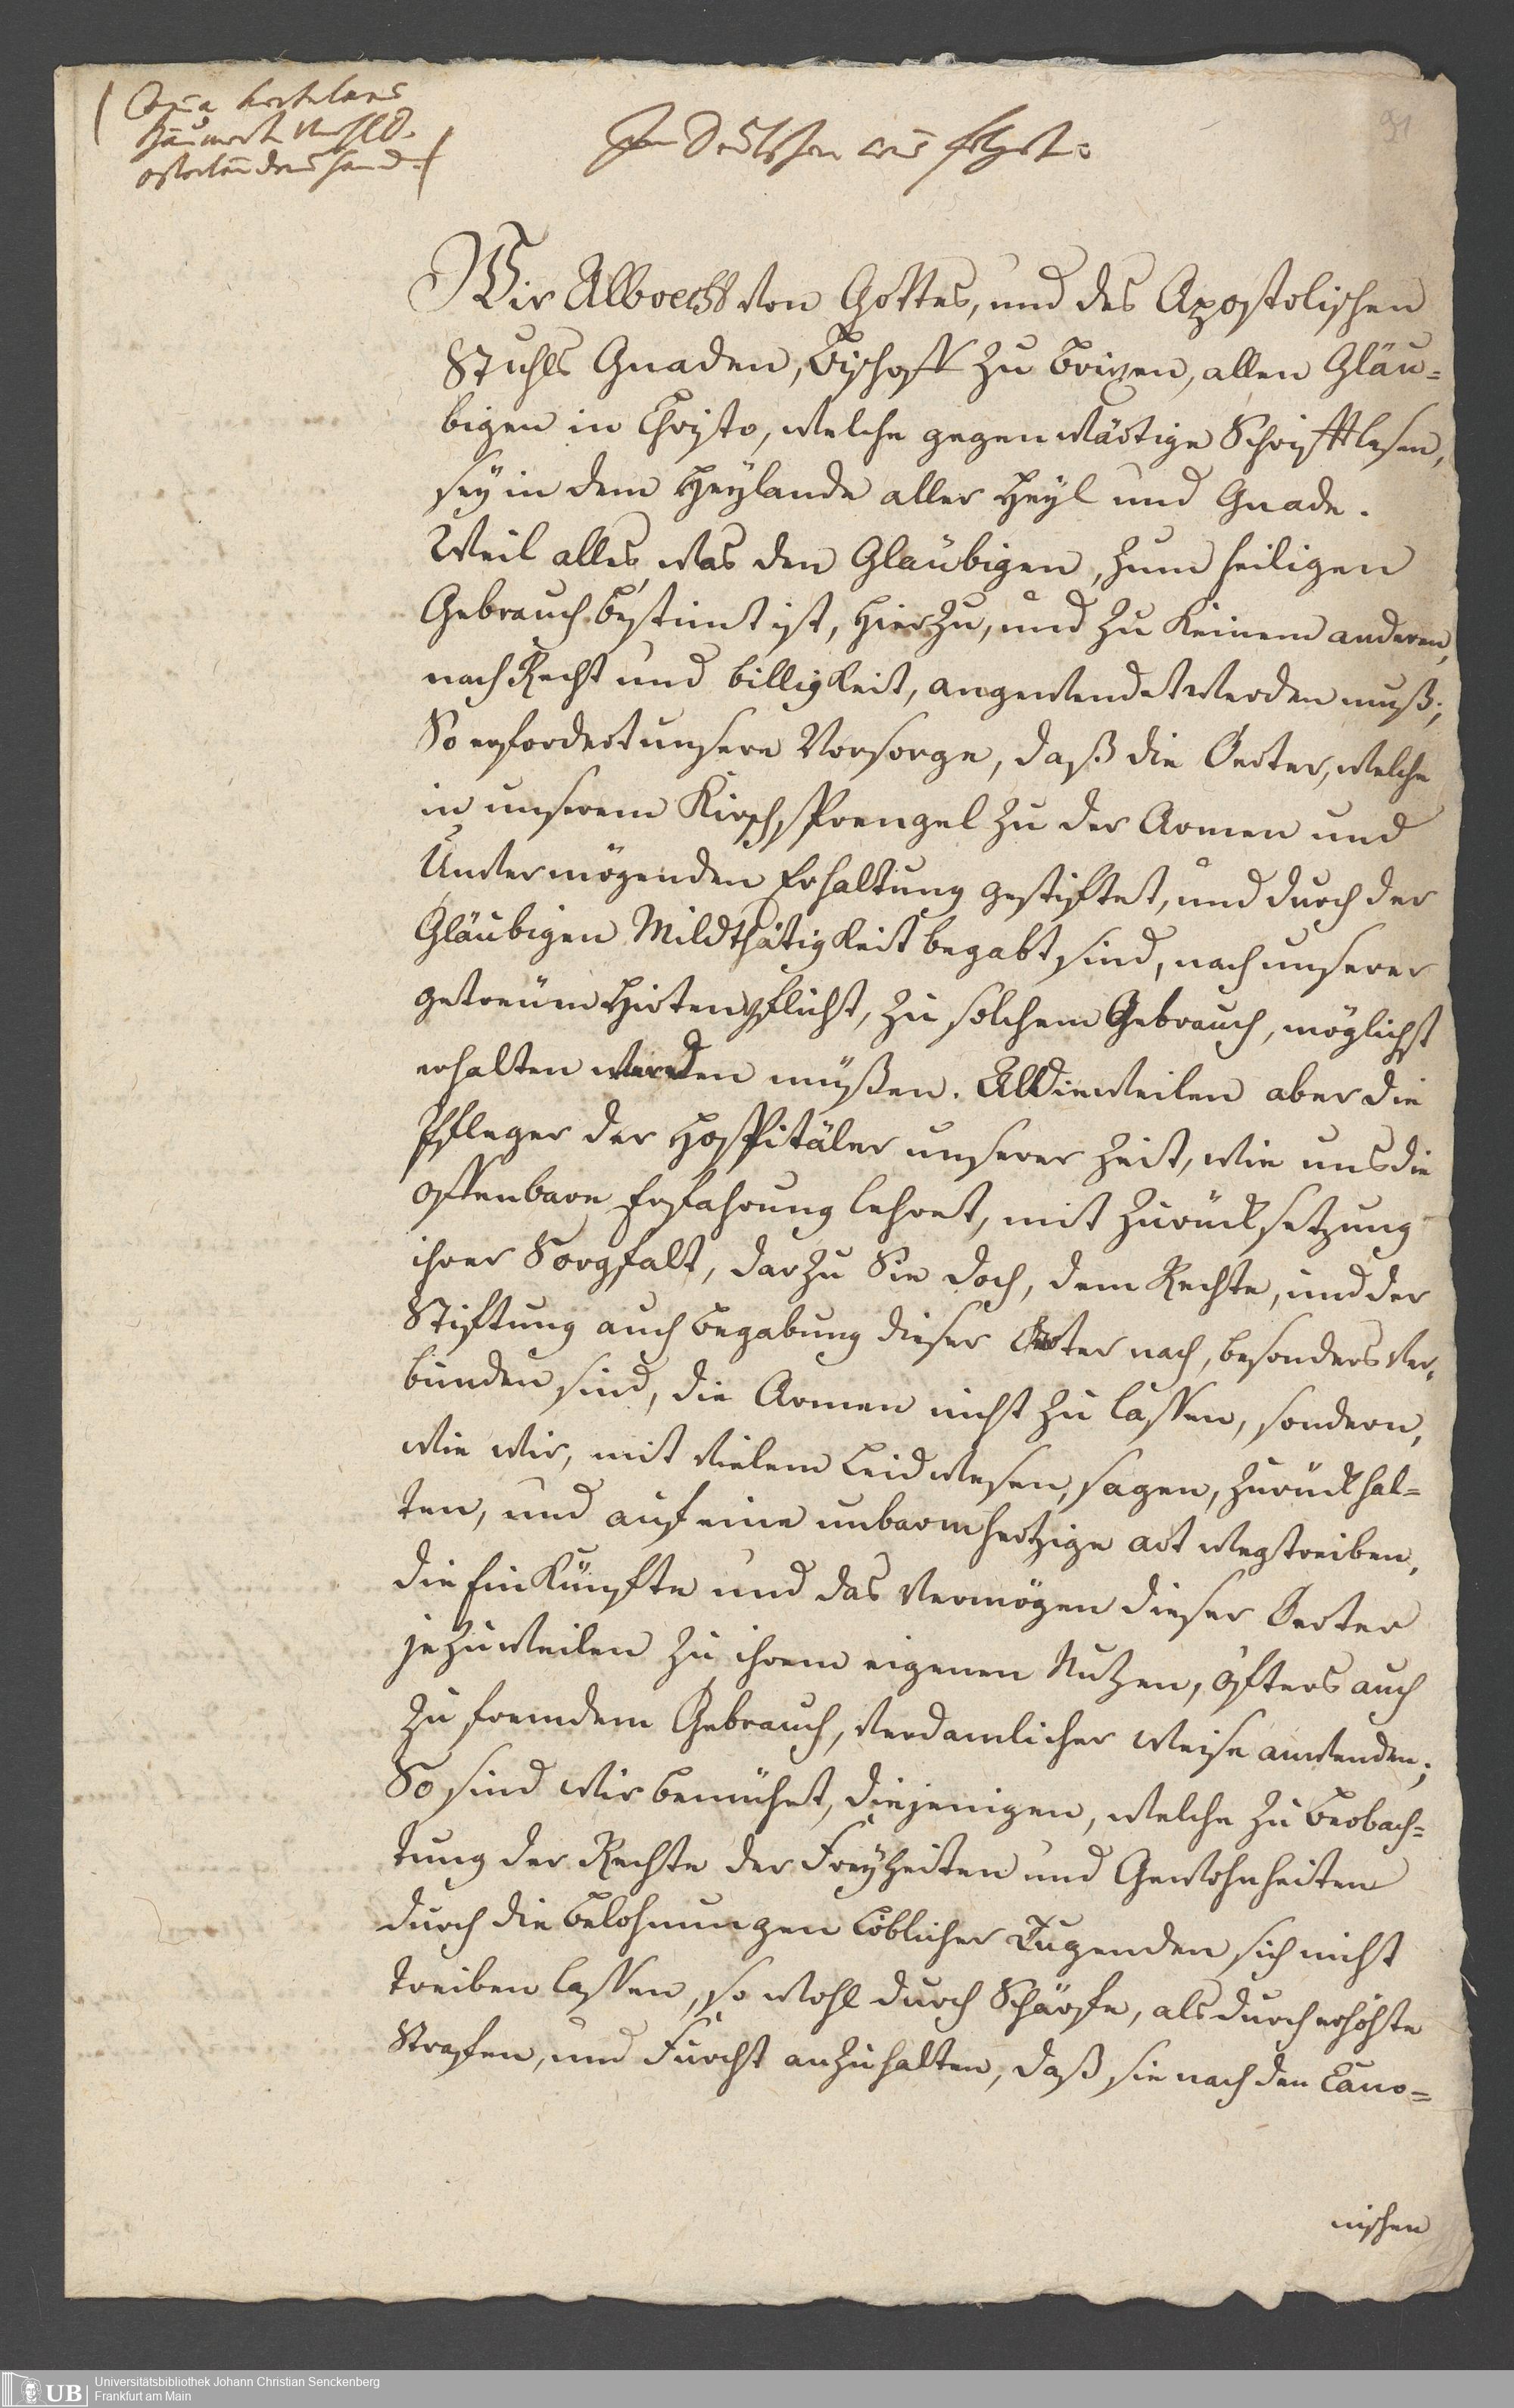 91
Im Deutschen wie folget:
Wir Albrecht von Gottes, und des Apostolischen
Stuhls Gnaden, Bischoff zu Brixen, allen Gläu=
bigen in Christo, welche gegenwärtige Schrifft lesen,
sey in dem Heylande aller Heyl und Gnade.
Weil alles was den Glaübigen, zum heiligen
Gebrauch bestimt ist, hierzu, und zu keinem anderen,
nach Recht und billigkeit, angewendet werden muß;
So erfordert unsere Vorsorge, daß die Oerter, welche
in unserem Kirchsprengel zu der Armen und
Unvermögenden Erhaltung gestifftet, und durch der
Gläubigen Mildthätigkeit begabt sind, nach unserer
getreuen Hirtenpflicht, zu solchem Gebrauch, möglichst
erhalten werden müßen. Alldieweilen aber die
Pfleger der Hospitäler unserer Zeit, wie uns die
offenbare Erfahrung lehret, mit Zurücksetzung
ihrer Sorgfalt, darzu Sie doch, dem Rechte, und der
Stiftung auch Begabung dieser Oerter nach, besonders ver,
bunden sind, die Armen nicht zu lassen, sondern,
wie wir, mit vielem Leidwesen, sagen, zurückhal=
ten, und auf eine unbarmhertzige art wegtreiben,
die Einkünfte und das Vermögen dieser Oerter
jezuweilen zu ihrem eigenen Nutzen, öfters auch
zu fremdem Gebrauch, verdamlicher Weise anwenden;
So sind wir bemühet, diejenigen, welche zu Beobach=
tung der Rechte der Freyheiten und Gewohnheiten
durch die Belohnungen löblicher Tugenden sich nicht
treiben lassen, so wohl durch Schärfe, als durch erhöhte
Strafen, und Furcht anzuhalten, daß sie nach den Cano=
nischen
UB
Universitätsbibliothek Johann Christian Senckenberg
Frankfurt am Main